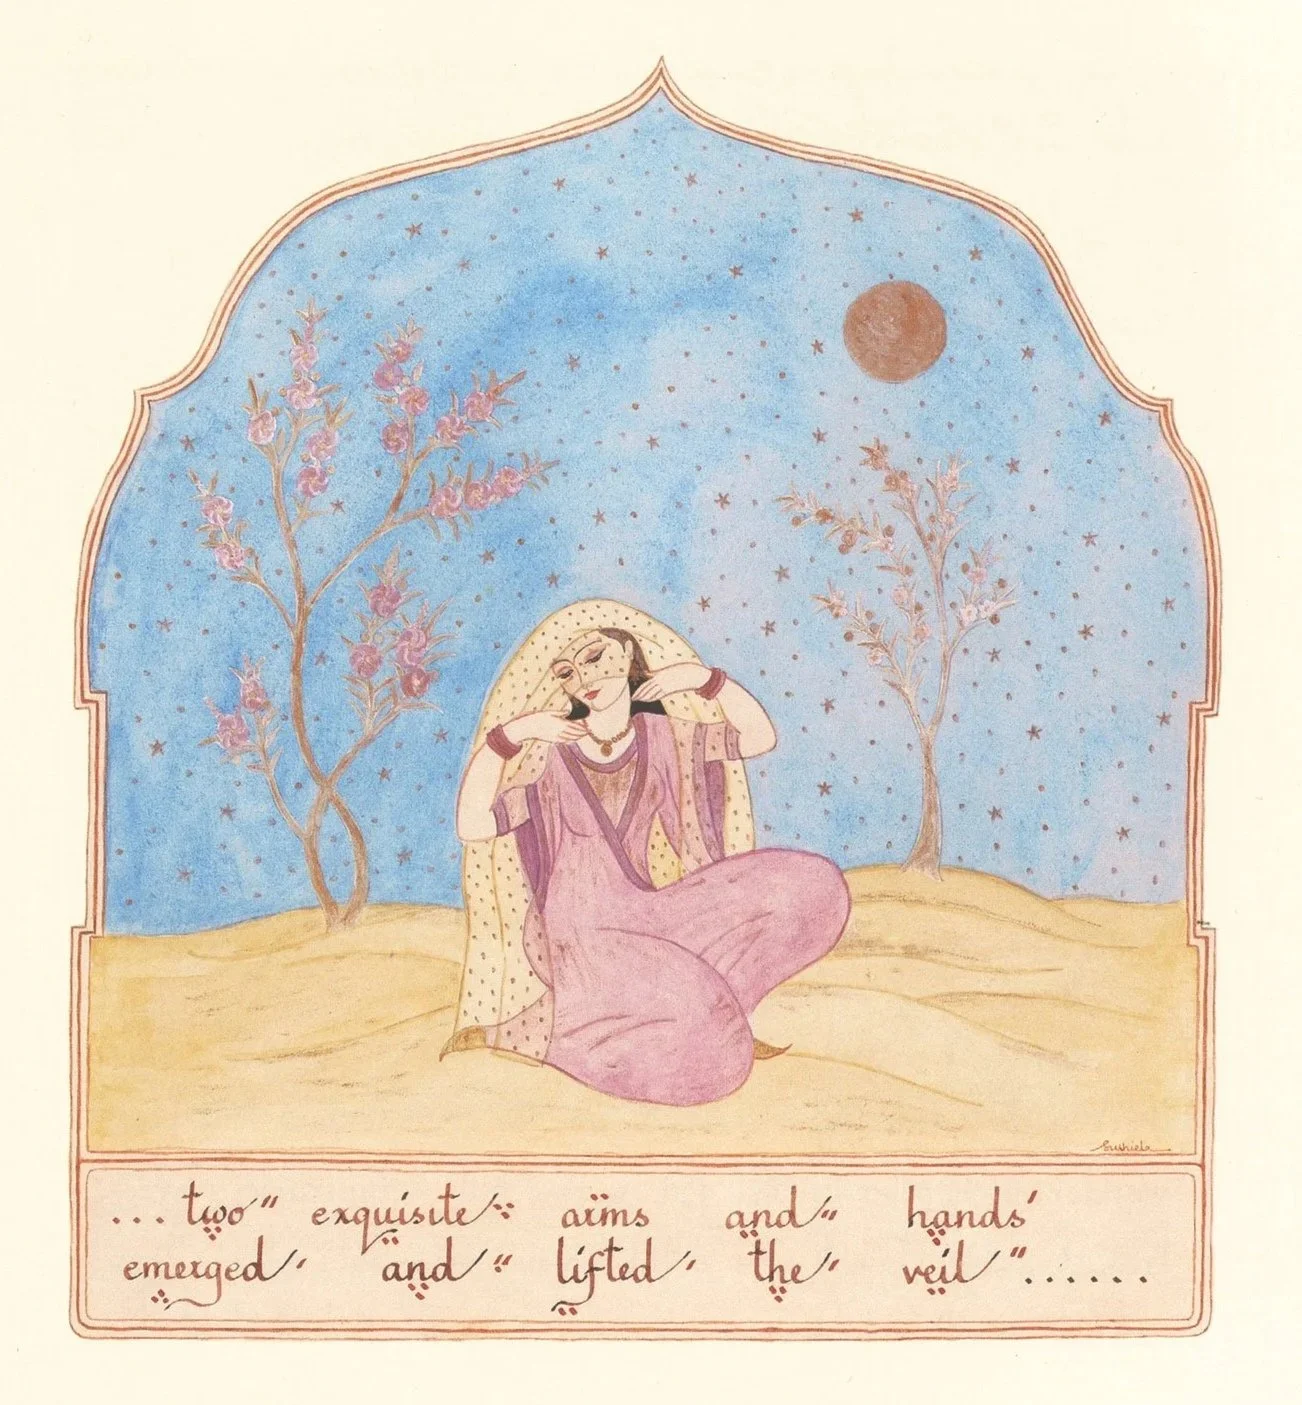 Sushiela
... two exquisite arms and hands
emerged and lifted the veil ......